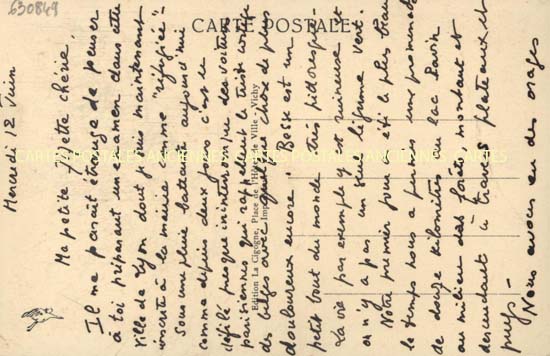 630849
CARTE POSTALE
Mercredi 12 Juin
Ma petite chérie.
Il me paraît étrange de penser
à toi préparant un examen dans cette
ville de Lyon dont je suis maintenant
inscrite à la mairie comme "réfugiée" -
Sous une pluie battante aujourd'hui
comme depuis deux jours c'est le
défilé presque ininterrompu des voitures
parisiennes qui rappellent le triste cortège
des belges avec quelque chose de plus
douloureux encore. Besse est un
petit bout du monde très pittoresque -
La vie par exemple y est ruineuse et
on n'y a pas un seul légume vert.
Notre premier jour a été le plus beau
le temps nous a permis une promenade
de douze kilomètres au lac Pavin
au milieu des forêts, montant et
descendant à travers plateaux et
puys -
Nous avons eu des orages
Edition La Cigogne, Place de l'Hôtel de Ville - Vichy
CARTES POSTALES ANCIENNES CARTES POSTALES ANCIENNES CARTES